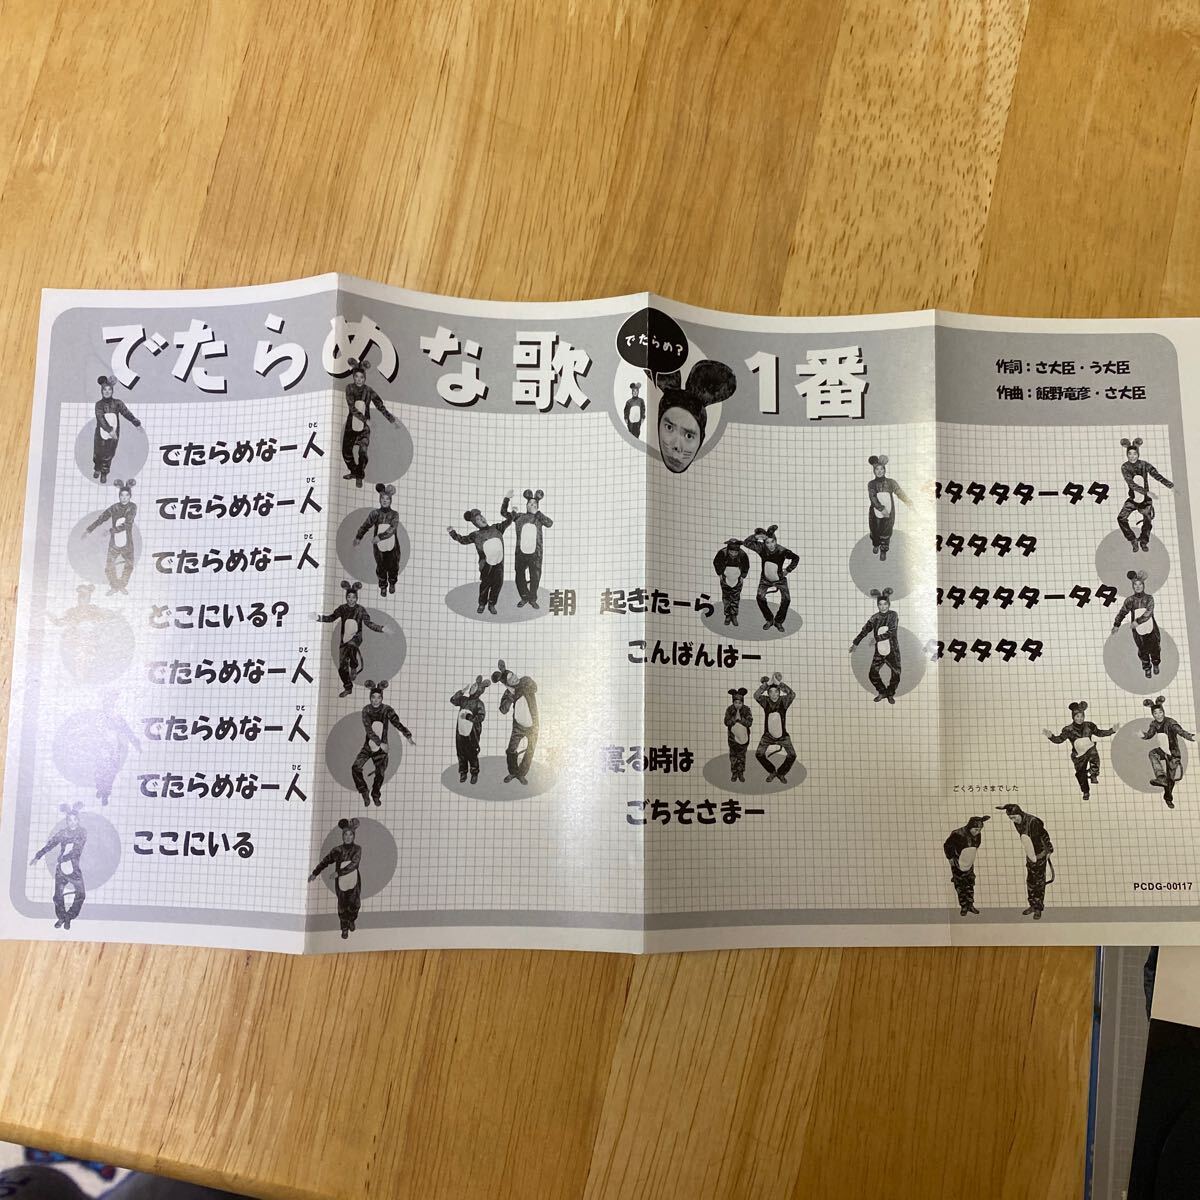 でたらめな歌 1番
でたらめ?
作詞：さ大臣・う大臣
作曲：飯野竜彦・さ大臣
でたらめなー人
ひと
でたらめなー人
ひと
でたらめなー人
ひと
どこにいる?
でたらめなー人
ひと
でたらめなー人
ひと
でたらめなー人
ひと
ここにいる
朝 起きたーら
こんばんはー
寝る時は
ごちそさまー
タタタタターータタ
タタタタタ
タタタタターータタ
タタタタタ
ごくろうさまでした
PCDG-00117